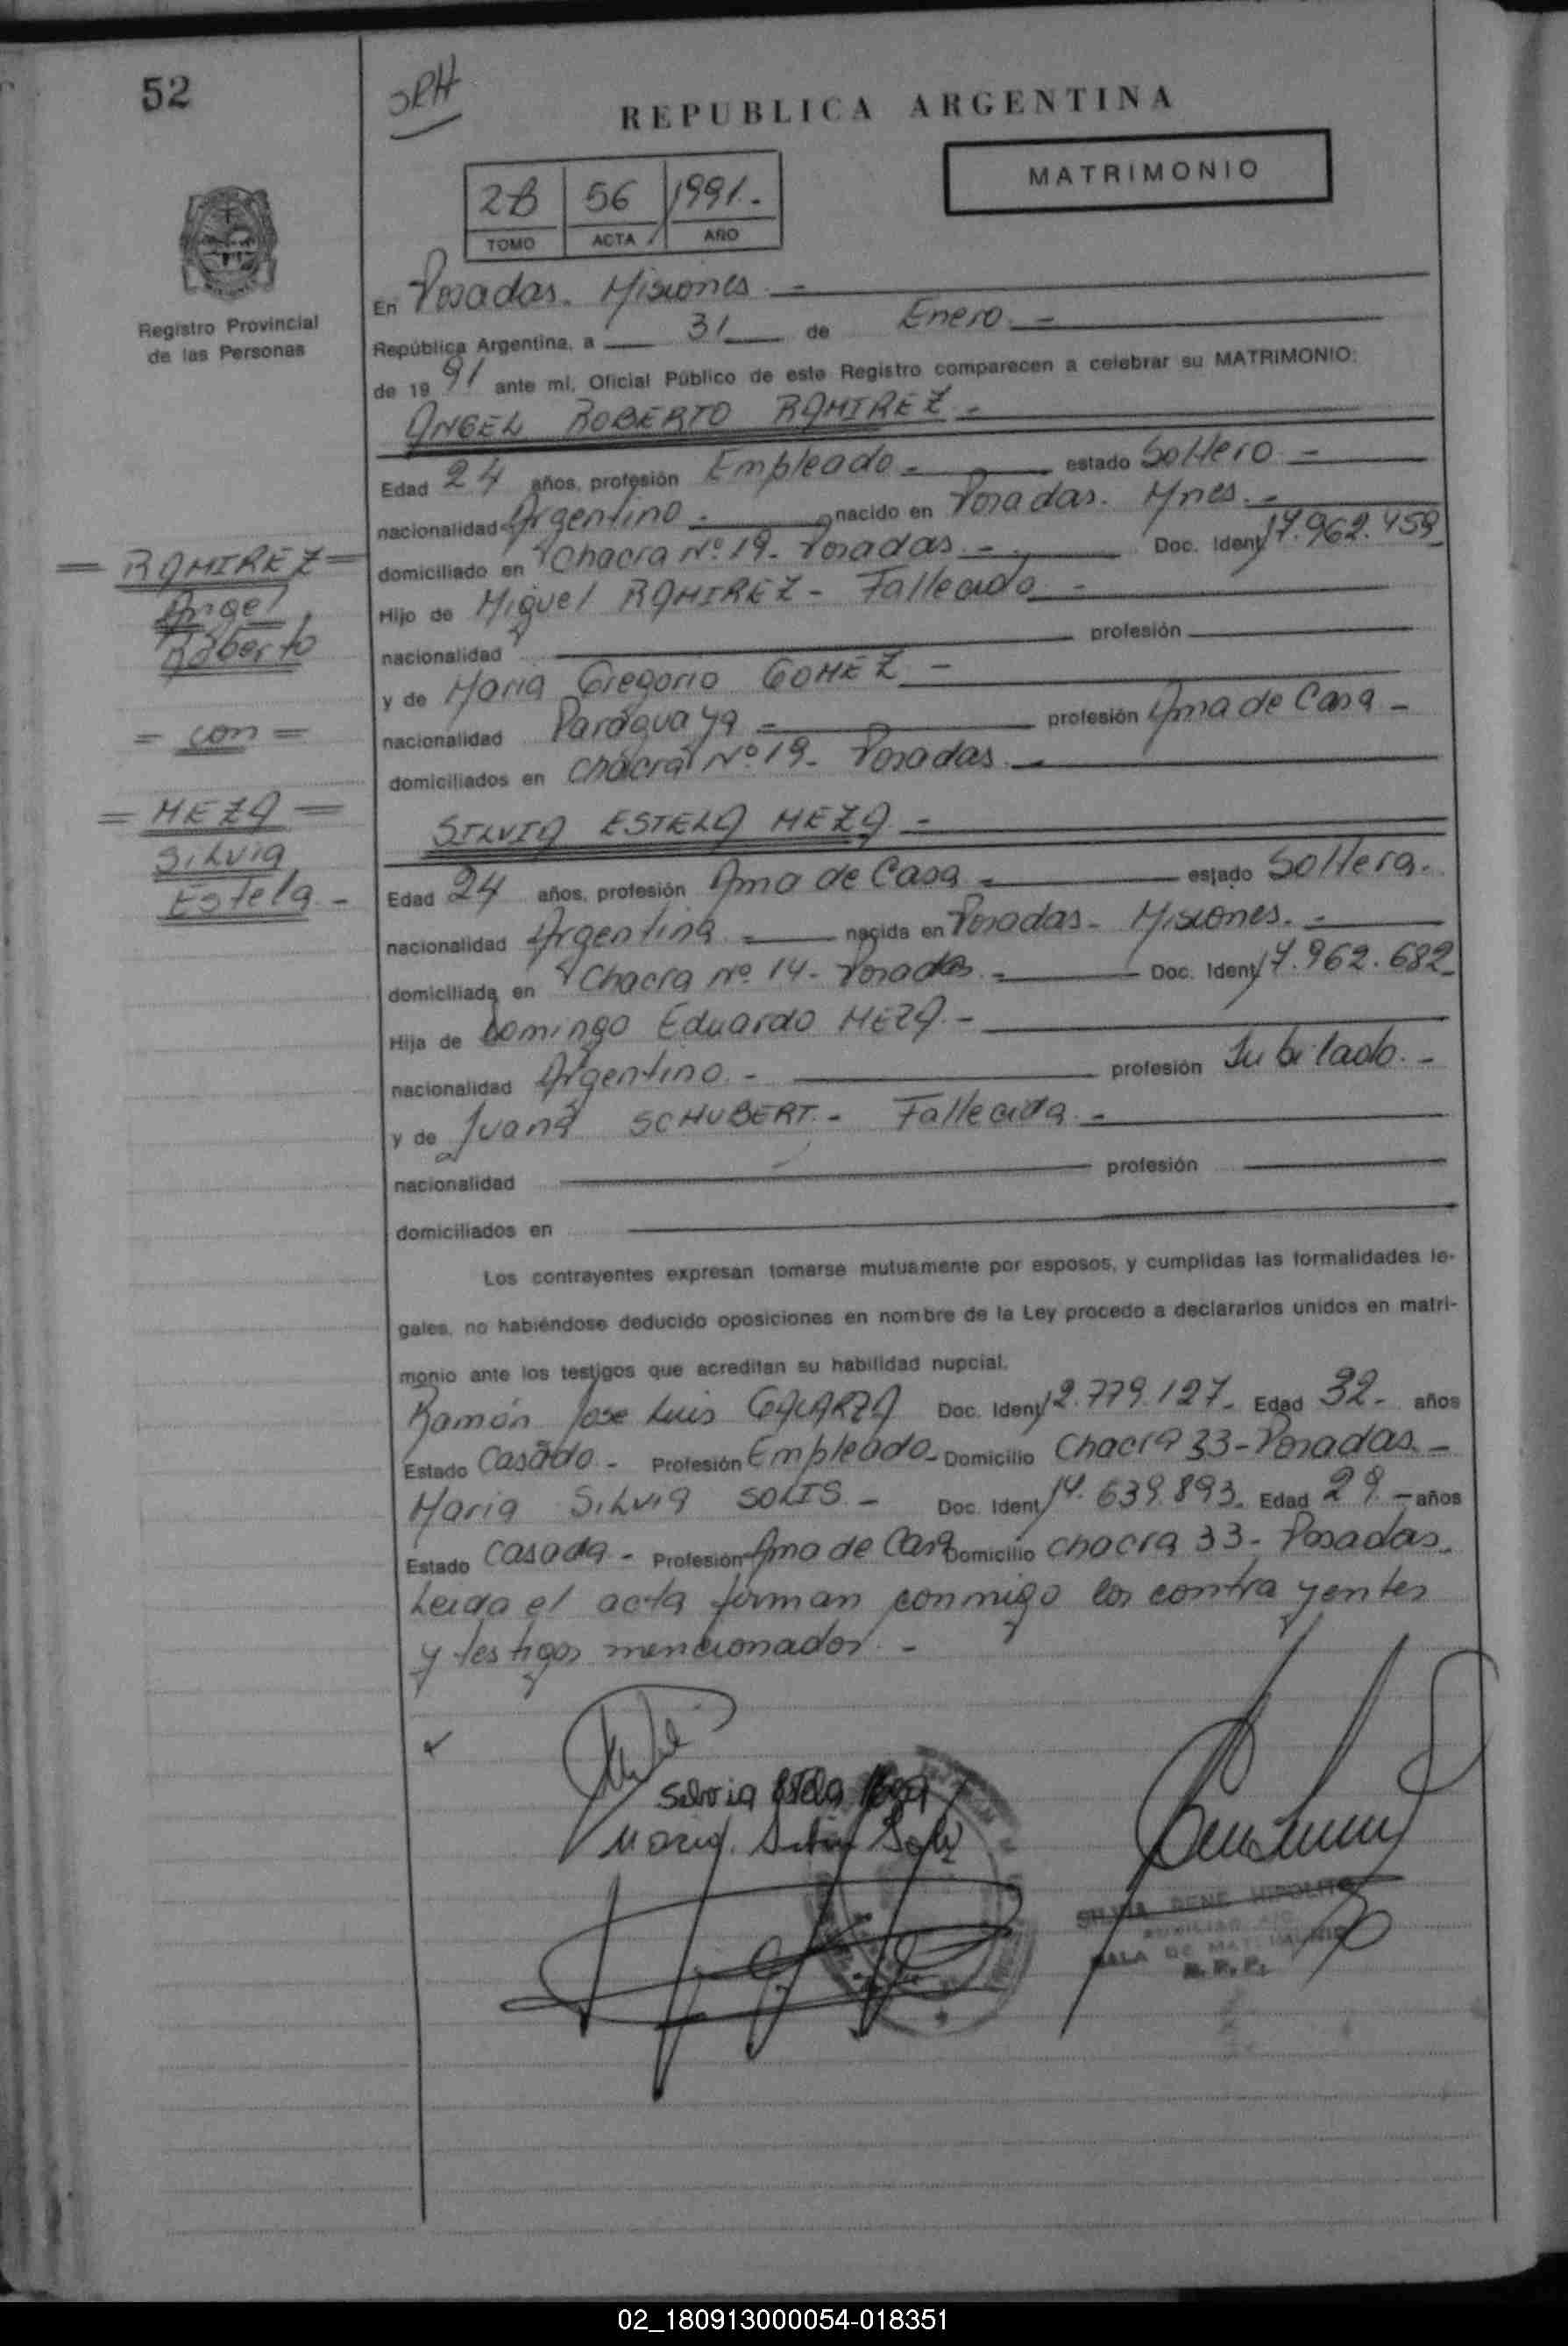 52
SRH
REPUBLICA ARGENTINA
MATRIMONIO
2B 56 1991.-
TOMO ACTA AÑO
Registro Provincial
de las Personas
En Posadas. Misiones -
República Argentina, a 31 de Enero -
de 19 91 ante mi, Oficial Público de este Registro comparecen a celebrar su MATRIMONIO:
ANGEL ROBERTO RAMIREZ -
Edad 24 años, profesión Empleado - estado Soltero -
nacionalidad Argentino - nacido en Posadas. Mnes. -
domiciliado en Chacra Nº 19- Posadas - Doc. Ident 17.962.459
Hijo de Miguel RAMIREZ - Fallecido -
nacionalidad profesión
y de Maria Gregoria GOMEZ -
nacionalidad Paraguaya - profesión Ama de Casa -
domiciliados en Chacra Nº 19- Posadas -
= RAMIREZ =
Angel
Roberto
= con =
= MEZA =
Silvia
Estela -
SILVIA ESTELA MEZA -
Edad 24 años, profesión Ama de Casa - estado Soltera.
nacionalidad Argentina - nacida en Posadas - Misiones. -
domiciliada en Chacra Nº 14- Posadas - Doc. Ident 17.962.682
Hija de Domingo Eduardo MEZA -
nacionalidad Argentino - profesión Jubilado. -
y de Juana SCHUBERT. - Fallecida -
nacionalidad profesión
domiciliados en
Los contrayentes expresan tomarse mutuamente por esposos, y cumplidas las formalidades le-
gales, no habiéndose deducido oposiciones en nombre de la Ley procedo a declararlos unidos en matri-
monio ante los testigos que acreditan su habilidad nupcial.
Ramón Jose Luis GALARZA Doc. Ident 12.779.127- Edad 32- años
Estado Casado - Profesión Empleado - Domicilio Chacra 33- Posadas -
Maria Silvia SOLIS - Doc. Ident 14.639.893- Edad 29 - años
Estado Casada - Profesión Ama de Casa Domicilio Chacra 33- Posadas.
Leida el acta firman conmigo los contrayentes
y testigos mencionados -
Silvia Estela Meza
Maria Silvia Solis
SILVIA RENE HIPOLITO
AUXILIAR A/C
SALA DE MATRIMONIO
R. P. P.
02_180913000054-018351